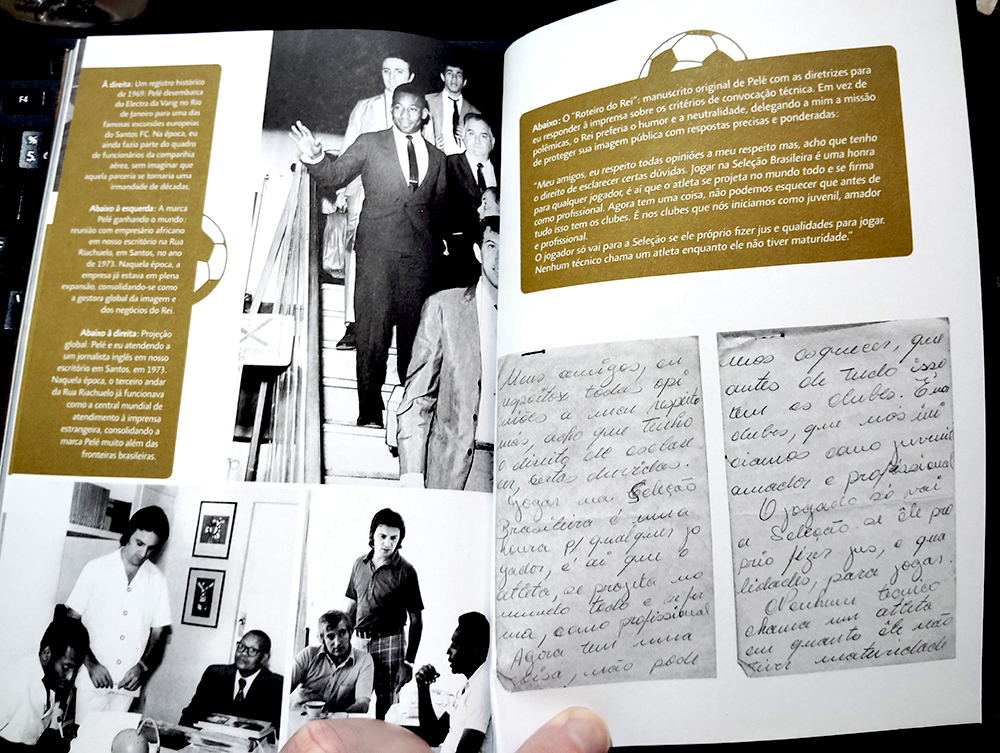 À direita: Um registro histórico
de 1969. Pelé desembarca
do Electra da Varig no Rio
de Janeiro para uma das
famosas excursões europeias
do Santos FC. Na época, eu
ainda fazia parte do quadro
de funcionários da companhia
aérea, sem imaginar que
aquela parceria se tornaria uma
irmandade de décadas.
Abaixo à esquerda: A marca
Pelé ganhando o mundo:
reunião com empresário africano
em nosso escritório na Rua
Riachuelo, em Santos, no ano
de 1973. Naquela época, a
empresa já estava em plena
expansão, consolidando-se como
a gestora global da imagem e
dos negócios do Rei.
Abaixo à direita: Projeção
global: Pelé e eu atendendo a
um jornalista inglês em nosso
escritório em Santos, em 1973.
Naquela época, o terceiro andar
da Rua Riachuelo já funcionava
como a central mundial de
atendimento à imprensa
estrangeira, consolidando a
marca Pelé muito além das
fronteiras brasileiras.
Abaixo: O "Roteiro do Rei": manuscrito original de Pelé com as diretrizes para
eu responder à imprensa sobre os critérios de convocação técnica. Em vez de
polêmicas, o Rei preferia o humor e a neutralidade, delegando a mim a missão
de proteger sua imagem pública com respostas precisas e ponderadas:
"Meus amigos, eu respeito todas opiniões a meu respeito mas, acho que tenho
o direito de esclarecer certas dúvidas. Jogar na Seleção Brasileira é uma honra
para qualquer jogador, é aí que o atleta se projeta no mundo todo e se firma
como profissional. Agora tem uma coisa, não podemos esquecer que antes de
tudo isso tem os clubes. É nos clubes que nós iniciamos como juvenil, amador
e profissional.
O jogador só vai para a Seleção se ele próprio fizer jus e qualidades para jogar.
Nenhum técnico chama um atleta enquanto ele não tiver maturidade."
Meus amigos, eu
respeito todas opi
niões a meu respeito
mas, acho que tenho
o direito de esclare
cer, certas duvidas.
Jogar na Seleção
Brasileira é uma
honra p/ qualquer jo
gador, é ai que o
atleta, se projeta no
mundo todo e se fir
ma, como profissional
Agora tem uma
coisa, não pode
mos esquecer, que
antes de tudo isso
tem os clubes. É nos
clubes, que nós ini
ciamos como juvenil
amador e profissional
O jogador só vai
a Seleção se êle pro
prio fizer jus, e qua
lidades, para jogar.
Nenhum tecnico
chama um atleta
em quanto êle não
tiver maturidade
F4
%
5